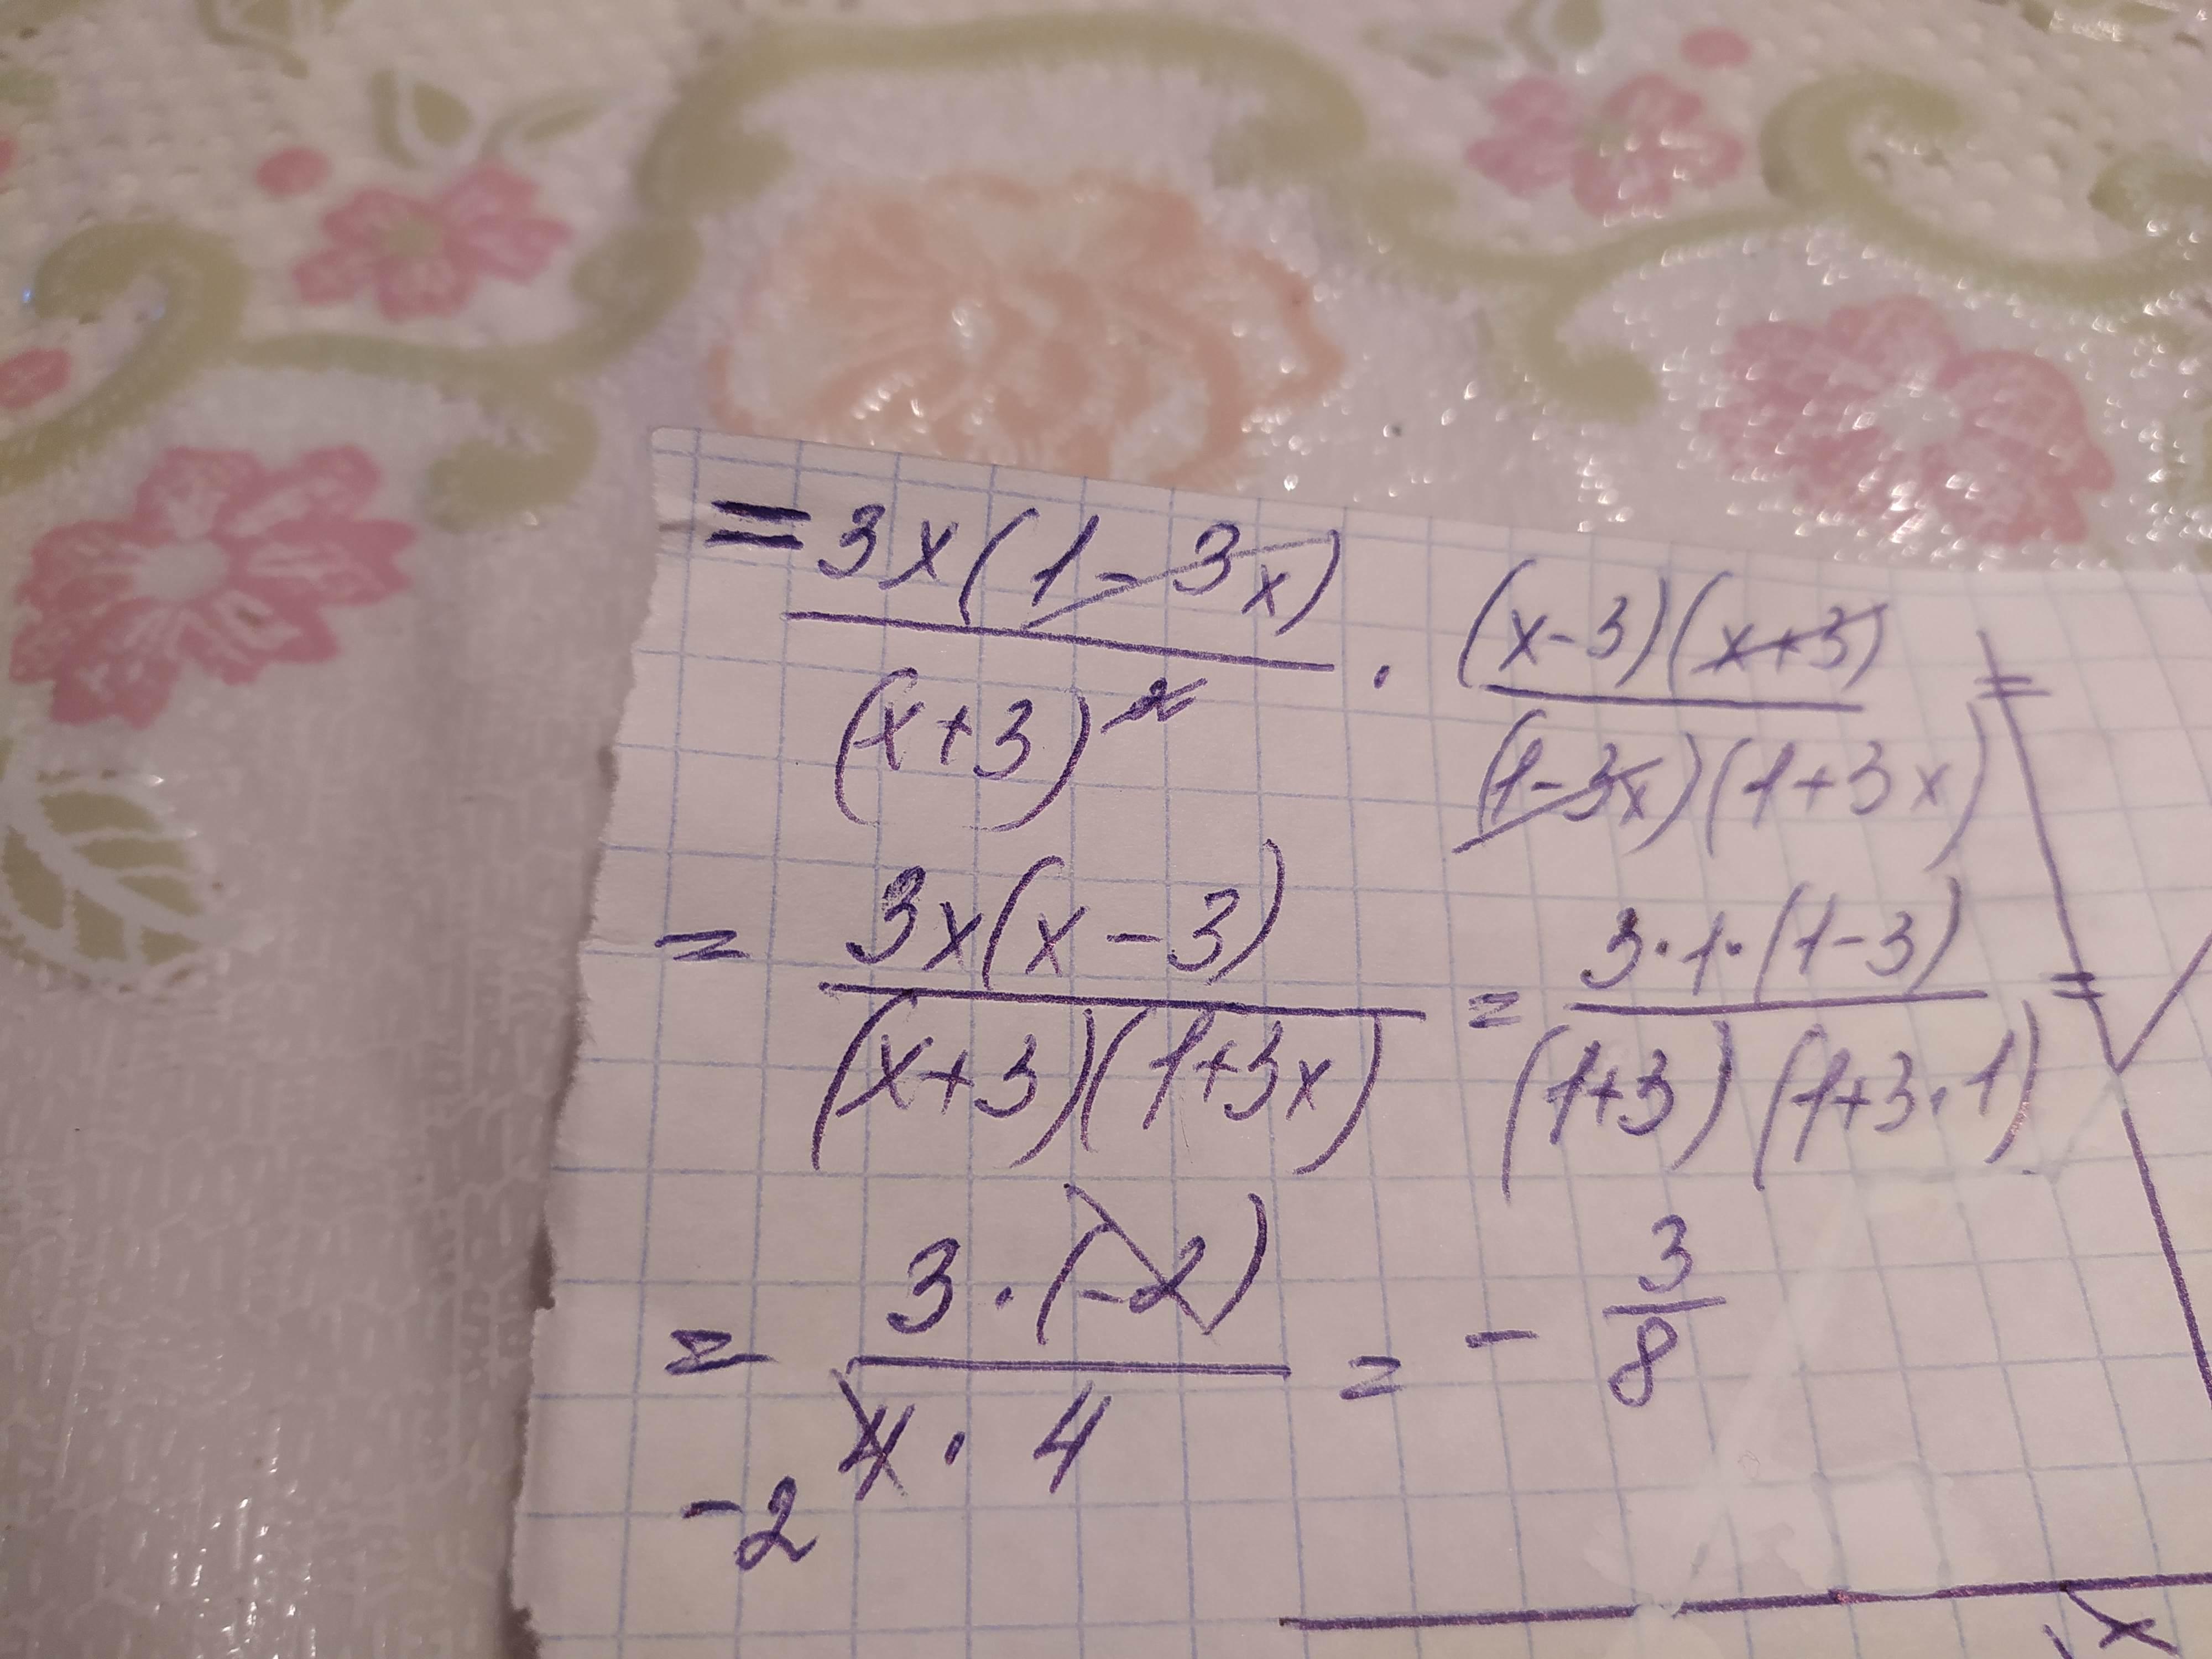 = 3x(1-3x)/(x+3)² · (x-3)(x+3)/(1-3x)(1+3x) =
= 3x(x-3)/(x+3)(1+3x) = 3·1·(1-3)/(1+3)(1+3·1) =
= 3·(-2)/4·4 = - 3/8
-2
x